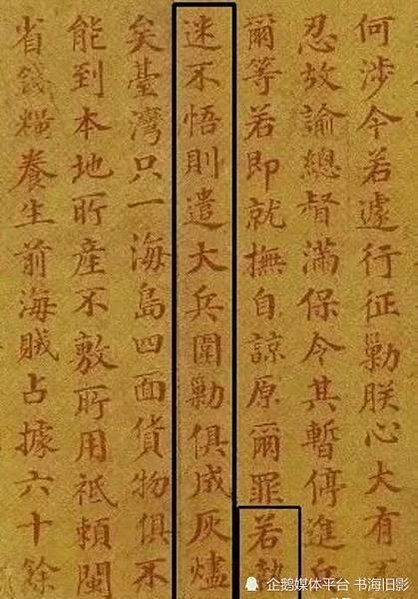 何涉今若遽行征勦朕心大有不
忍故諭總督滿保令其暫停進兵
爾等若即就撫自諒原爾罪若執
迷不悟則遣大兵圍勦俱成灰燼
矣臺灣只一海島四面貨物俱不
能到本地所產不敷所用祗賴閩
省錢糧養生前海賊占據六十餘
企鹅媒体平台 书海旧影